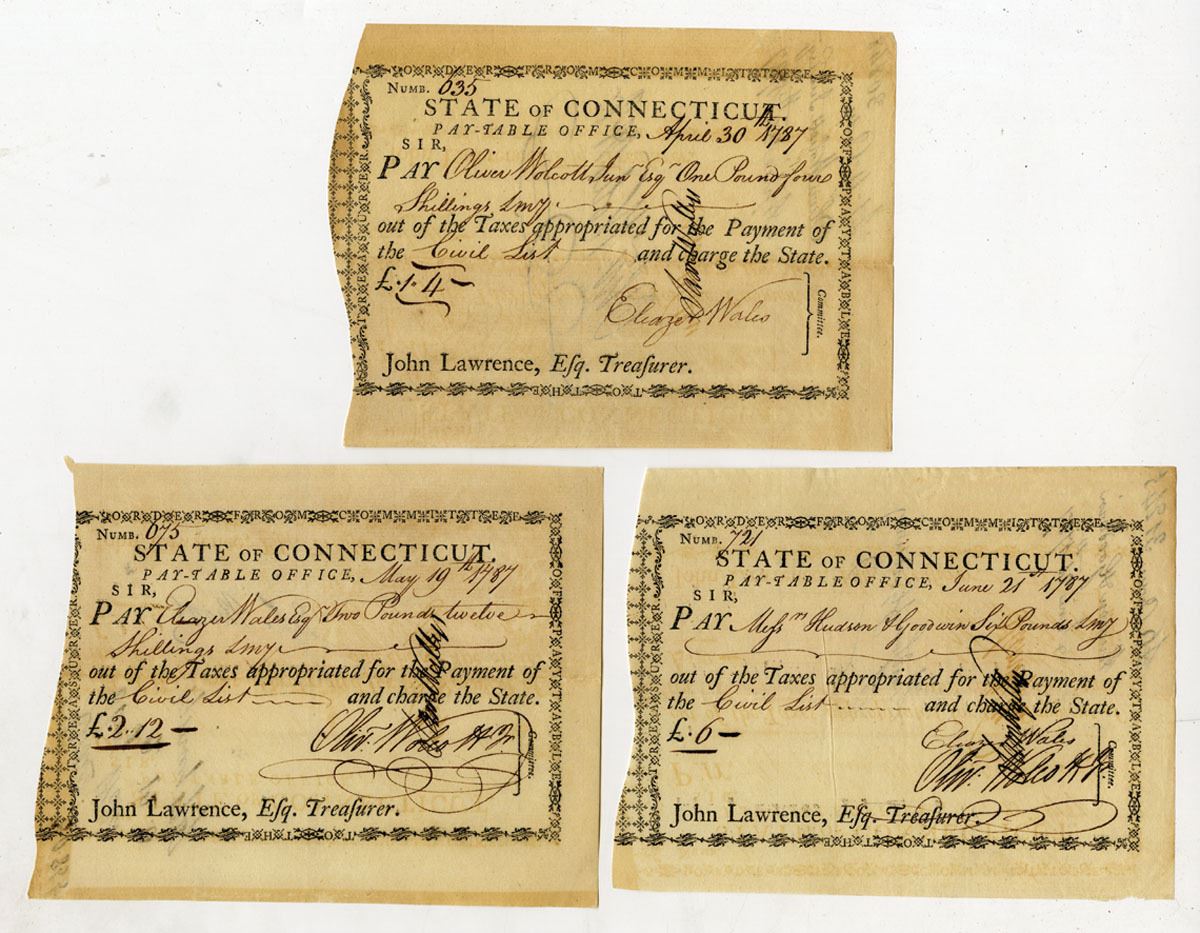 ORDER FROM COMMITTEE
OF PAY TABLE
TO THE
TREASURER
NUMB. 635
STATE OF CONNECTICUT.
PAY-TABLE OFFICE, April 30th 1787
SIR,
PAY Oliver Wolcott Junr Esqr One Pound four
Shillings Lmy
out of the Taxes appropriated for the Payment of
the Civil List and charge the State.
£ 1. 4
Eleazer Wales
Committee.
John Lawrence, Eſq. Treaſurer.
ORDER FROM COMMITTEE
OF PAY TABLE
TO THE
TREASURER
NUMB. 675
STATE OF CONNECTICUT.
PAY-TABLE OFFICE, May 19th 1787
SIR,
PAY Eleazer Wales Esqr Two Pounds twelve
Shillings Lmy
out of the Taxes appropriated for the Payment of
the Civil List and charge the State.
£. 2. 12
Olivr. Wolcott Jr
Committee.
John Lawrence, Eſq. Treaſurer.
ORDER FROM COMMITTEE
OF PAY TABLE
TO THE
TREASURER
NUMB. 721
STATE OF CONNECTICUT.
PAY-TABLE OFFICE, June 21st 1787
SIR,
PAY Meſsrs Hudson & Goodwin Six Pounds Lmy
out of the Taxes appropriated for the Payment of
the Civil List and charge the State.
£. 6
Eleazer Wales
Olivr. Wolcott Jr
Committee.
John Lawrence, Eſq. Treaſurer.